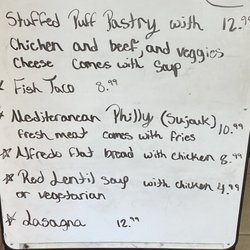 Stuffed Puff Pastry with 12.99
Chichen and beef and veggies
Cheese comes with soup
Fish Taco 8.99
Mediteranean Philly (Sujouk) 10.99
fresh meat comes with fries
Alfredo flat bread with chicken 8.99
Red Lentil soup with chicken 4.99
or vegetarian
Lasagna 12.99